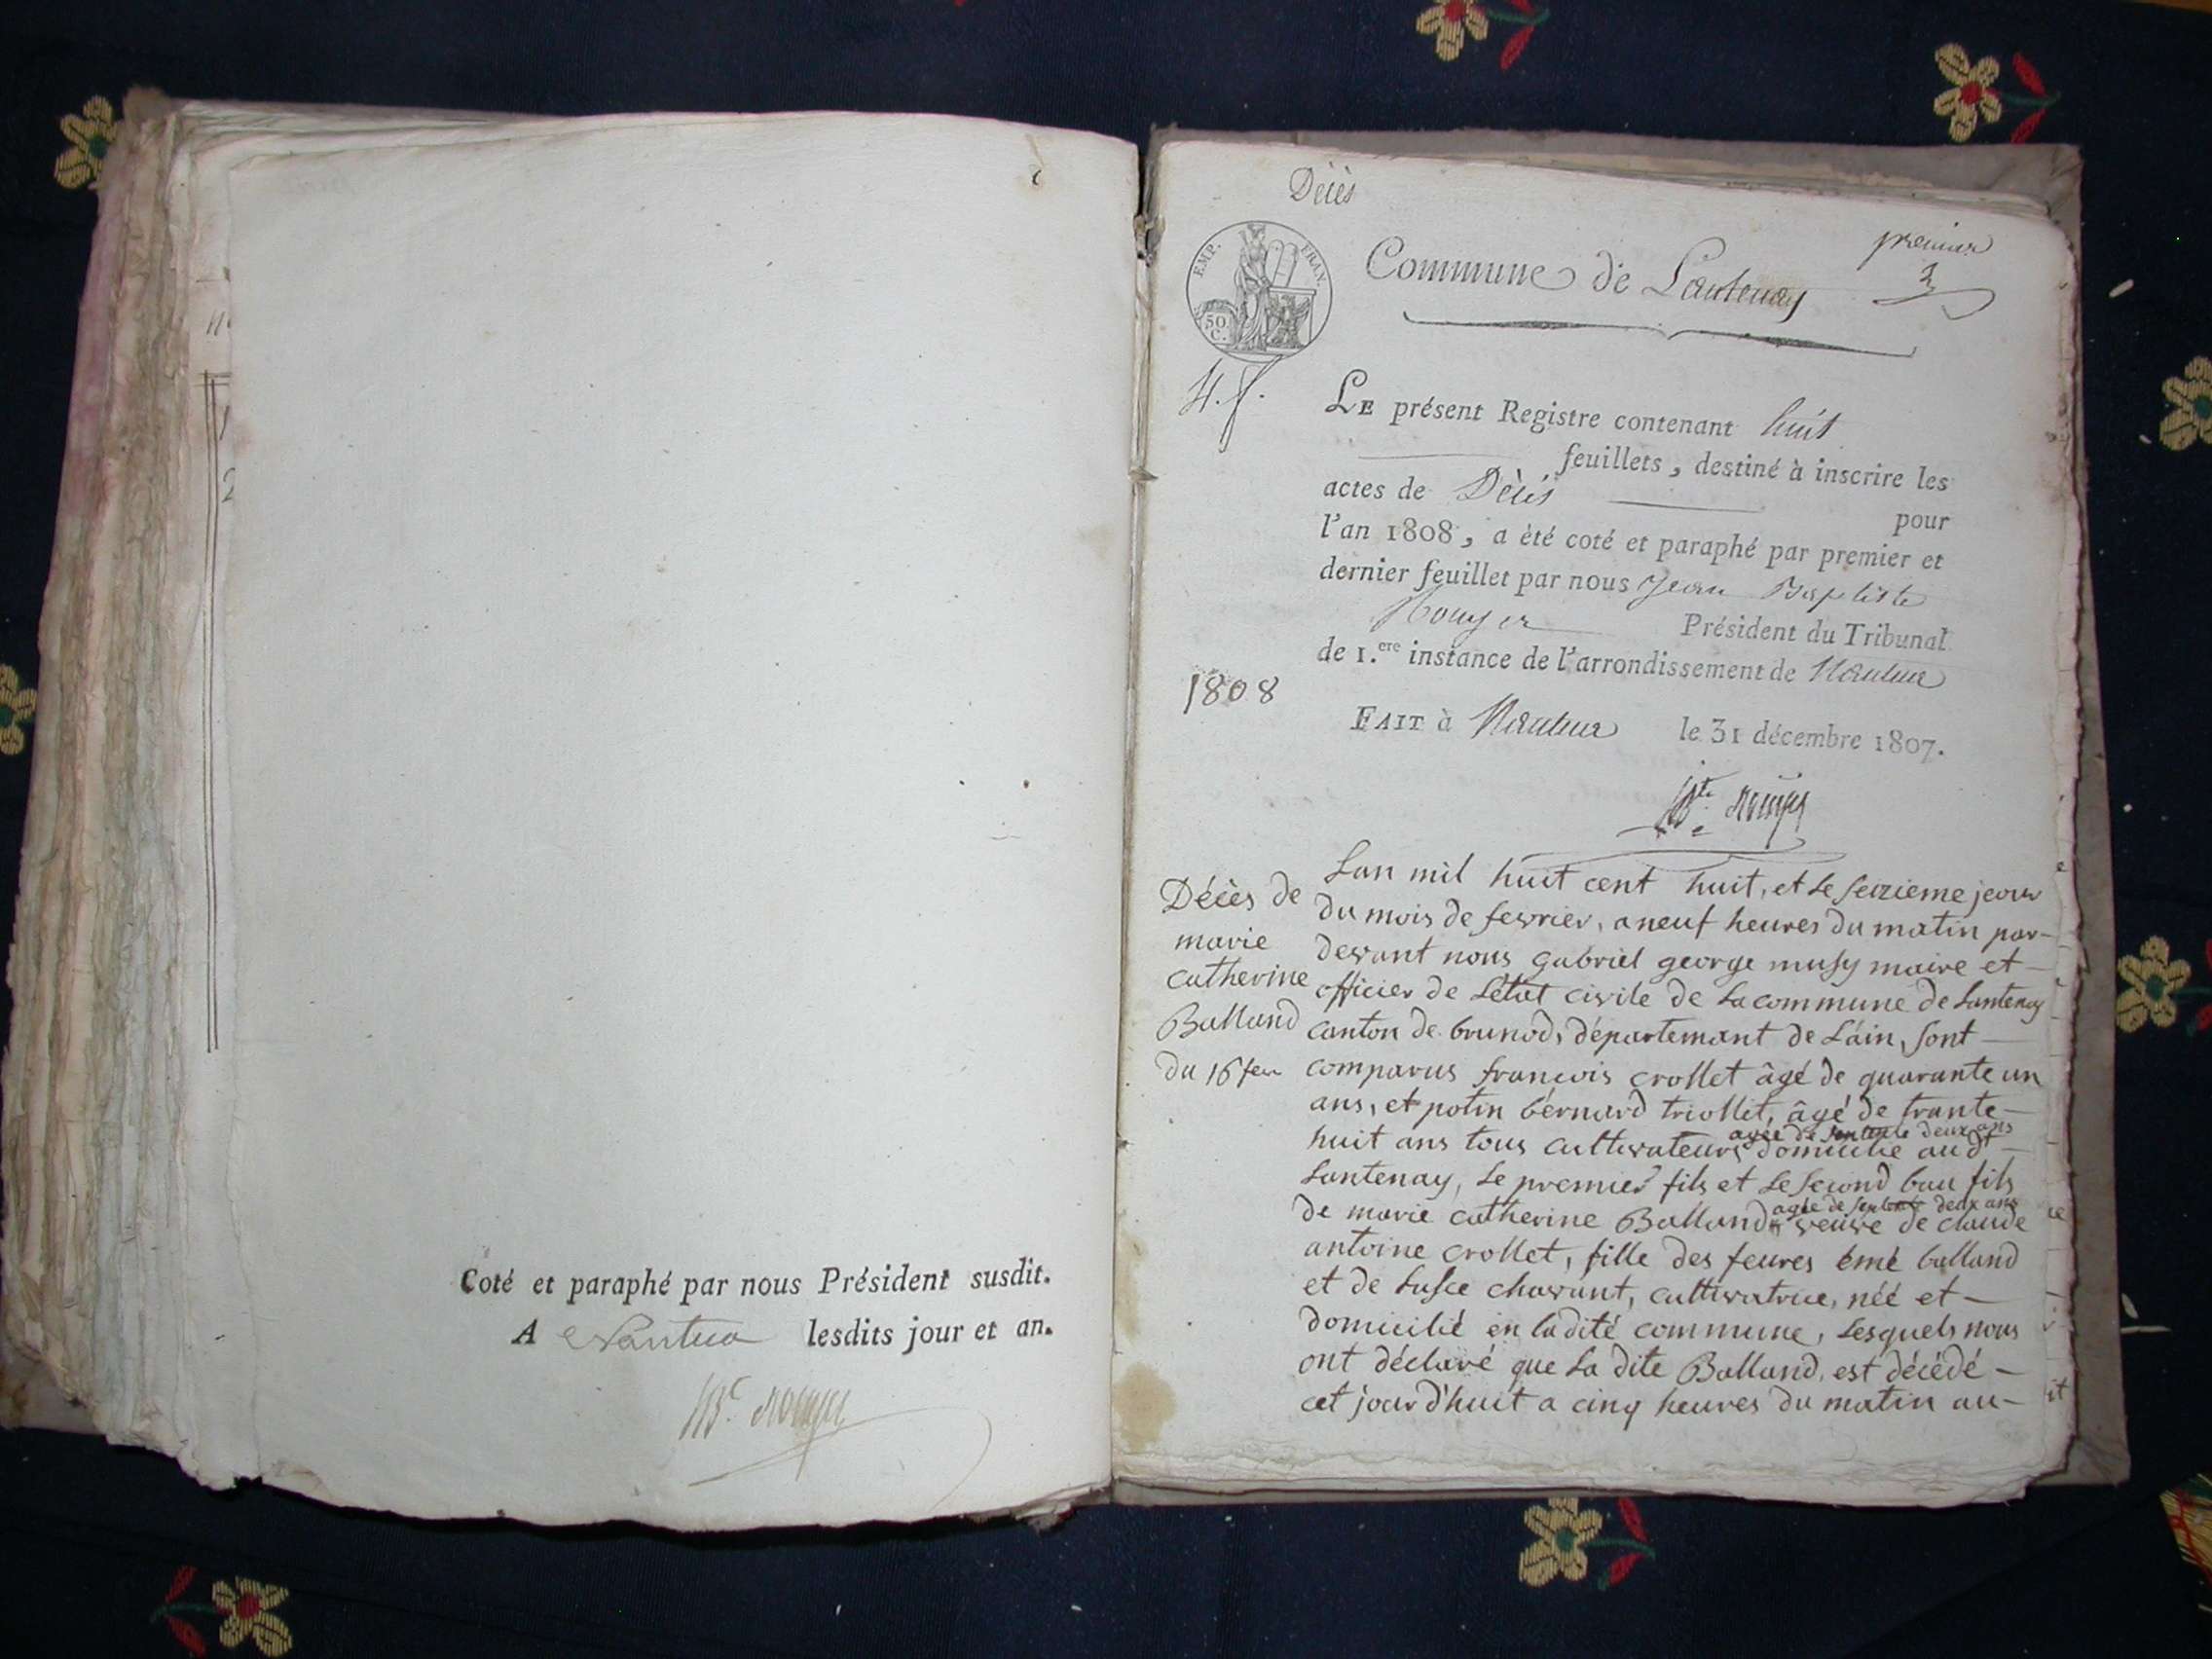 Coté et paraphé par nous Président susdit.
A Nantua lesdits jour et an.
Décès
premier
EMP. FRAN.
50 C.
Commune de Lantenay
LE présent Registre contenant huit
feuillets, destiné à inscrire les
actes de Décès pour
l'an 1808, a été coté et paraphé par premier et
dernier feuillet par nous Jean Baptiste
Rouyer Président du Tribunal
de 1.ere instance de l'arrondissement de Nantua
1808
FAIT à Nantua le 31 décembre 1807.
Décès de
marie
catherine
Balland
du 16 fev
Lan mil huit cent huit, et le seizieme jour
du mois de fevrier, a neuf heures du matin par-
devant nous gabriel george musy maire et
officier de Létat civile de La commune de Lantenay
canton de brunod, départemant de Láin, sont
comparus francois crollet âgé de quarante un
ans, et potin bérnard triollet, âgé de trante-
huit ans tous cultivateurs domicilié aud
agée de septente deux ans
Lantenay, Le premier fils et Le second bau fils
de marie catherine Balland veuve de claude
agée de septente deux ans
antoine crollet, fille des feures émé balland
et de Lusce chavant, cultivatrice, néé et
domicilié en ladité commune, Lesquels nous
ont déclaré que La dite Balland, est décédé
cet jourd'huit a cinq heures du matin au-